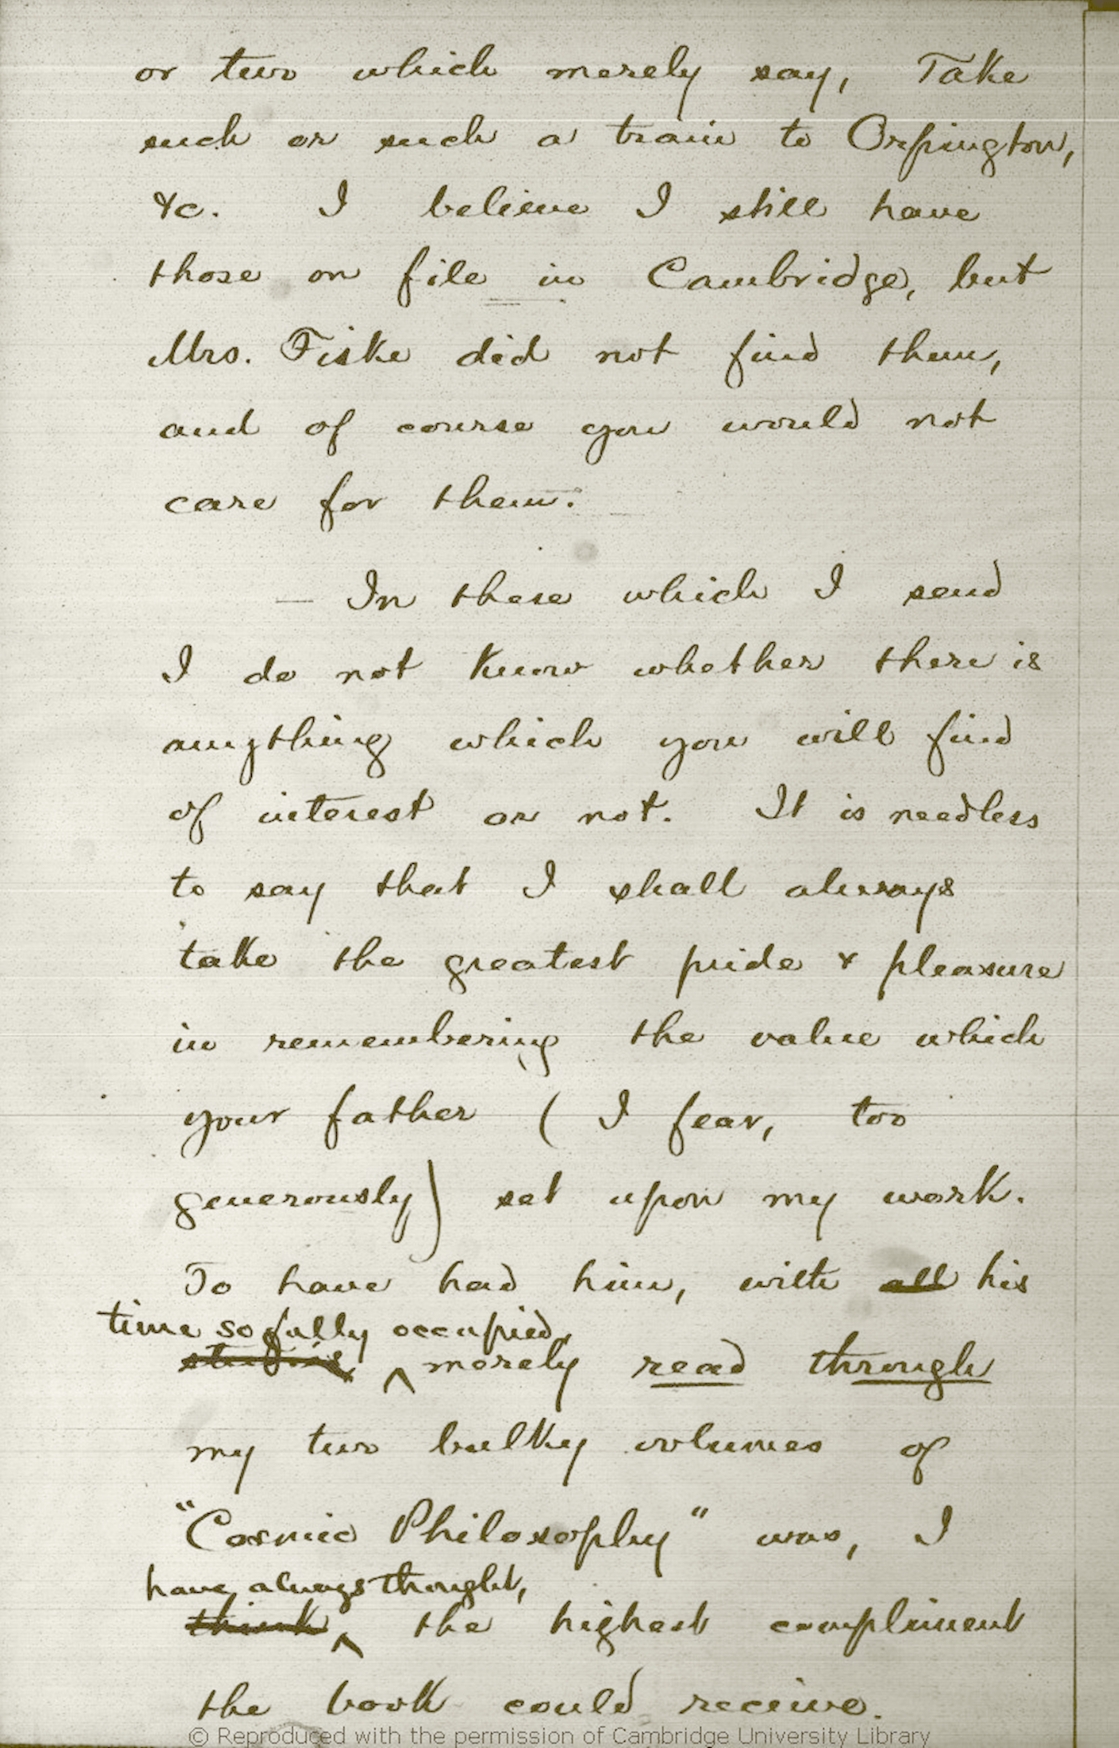 or two which merely say, Take
such or such a train to Orpington,
&c. I believe I still have
those on file in Cambridge, but
Mrs. Fiske did not find them,
and of course you would not
care for them.
— In these which I send
I do not know whether there is
anything which you will find
of interest or not. It is needless
to say that I shall always
take the greatest pride & pleasure
in remembering the value which
your father ( I fear, too
generously) set upon my work.
To have had him, with all his
time so fully occupied,
studies merely read through
my two bulky volumes of
"Cosmic Philosophy" was, I
have always thought,
think the highest compliment
the book could receive.
© Reproduced with the permission of Cambridge University Library